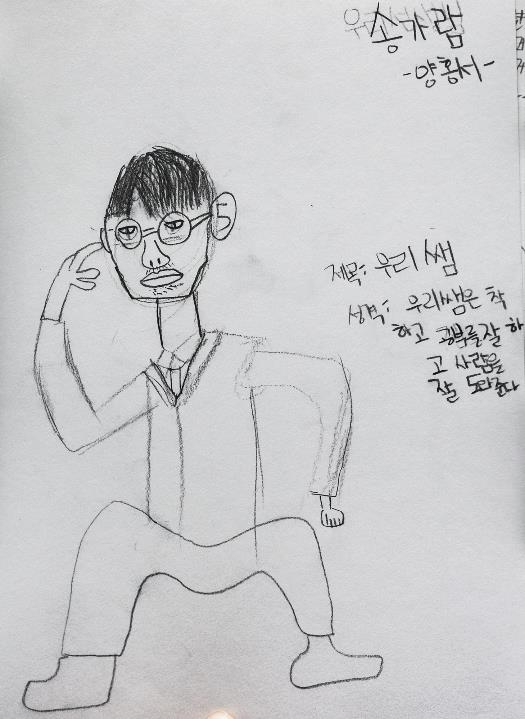 송가람
-양황서-
제목: 우리 쌤
성격: 우리쌤은 착
하고 공부를잘 하
고 사람을
잘 도와준다